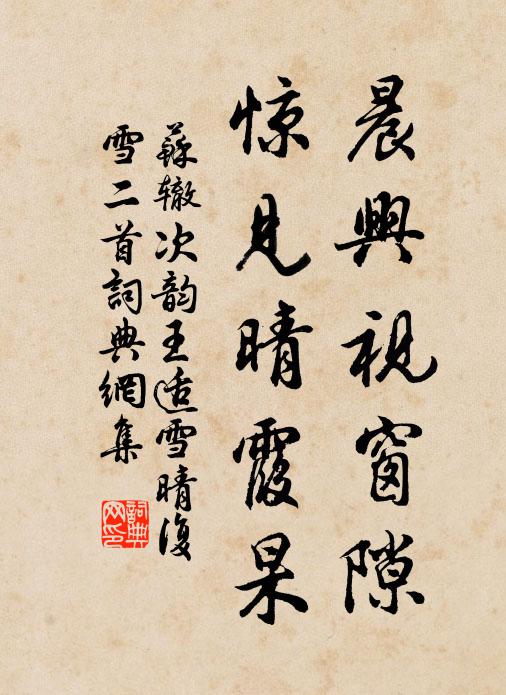 晨興視窗隙
惊見晴霞杲
蘇辙次韵王适雪晴復
雪二首詞典網集
詞典
网印